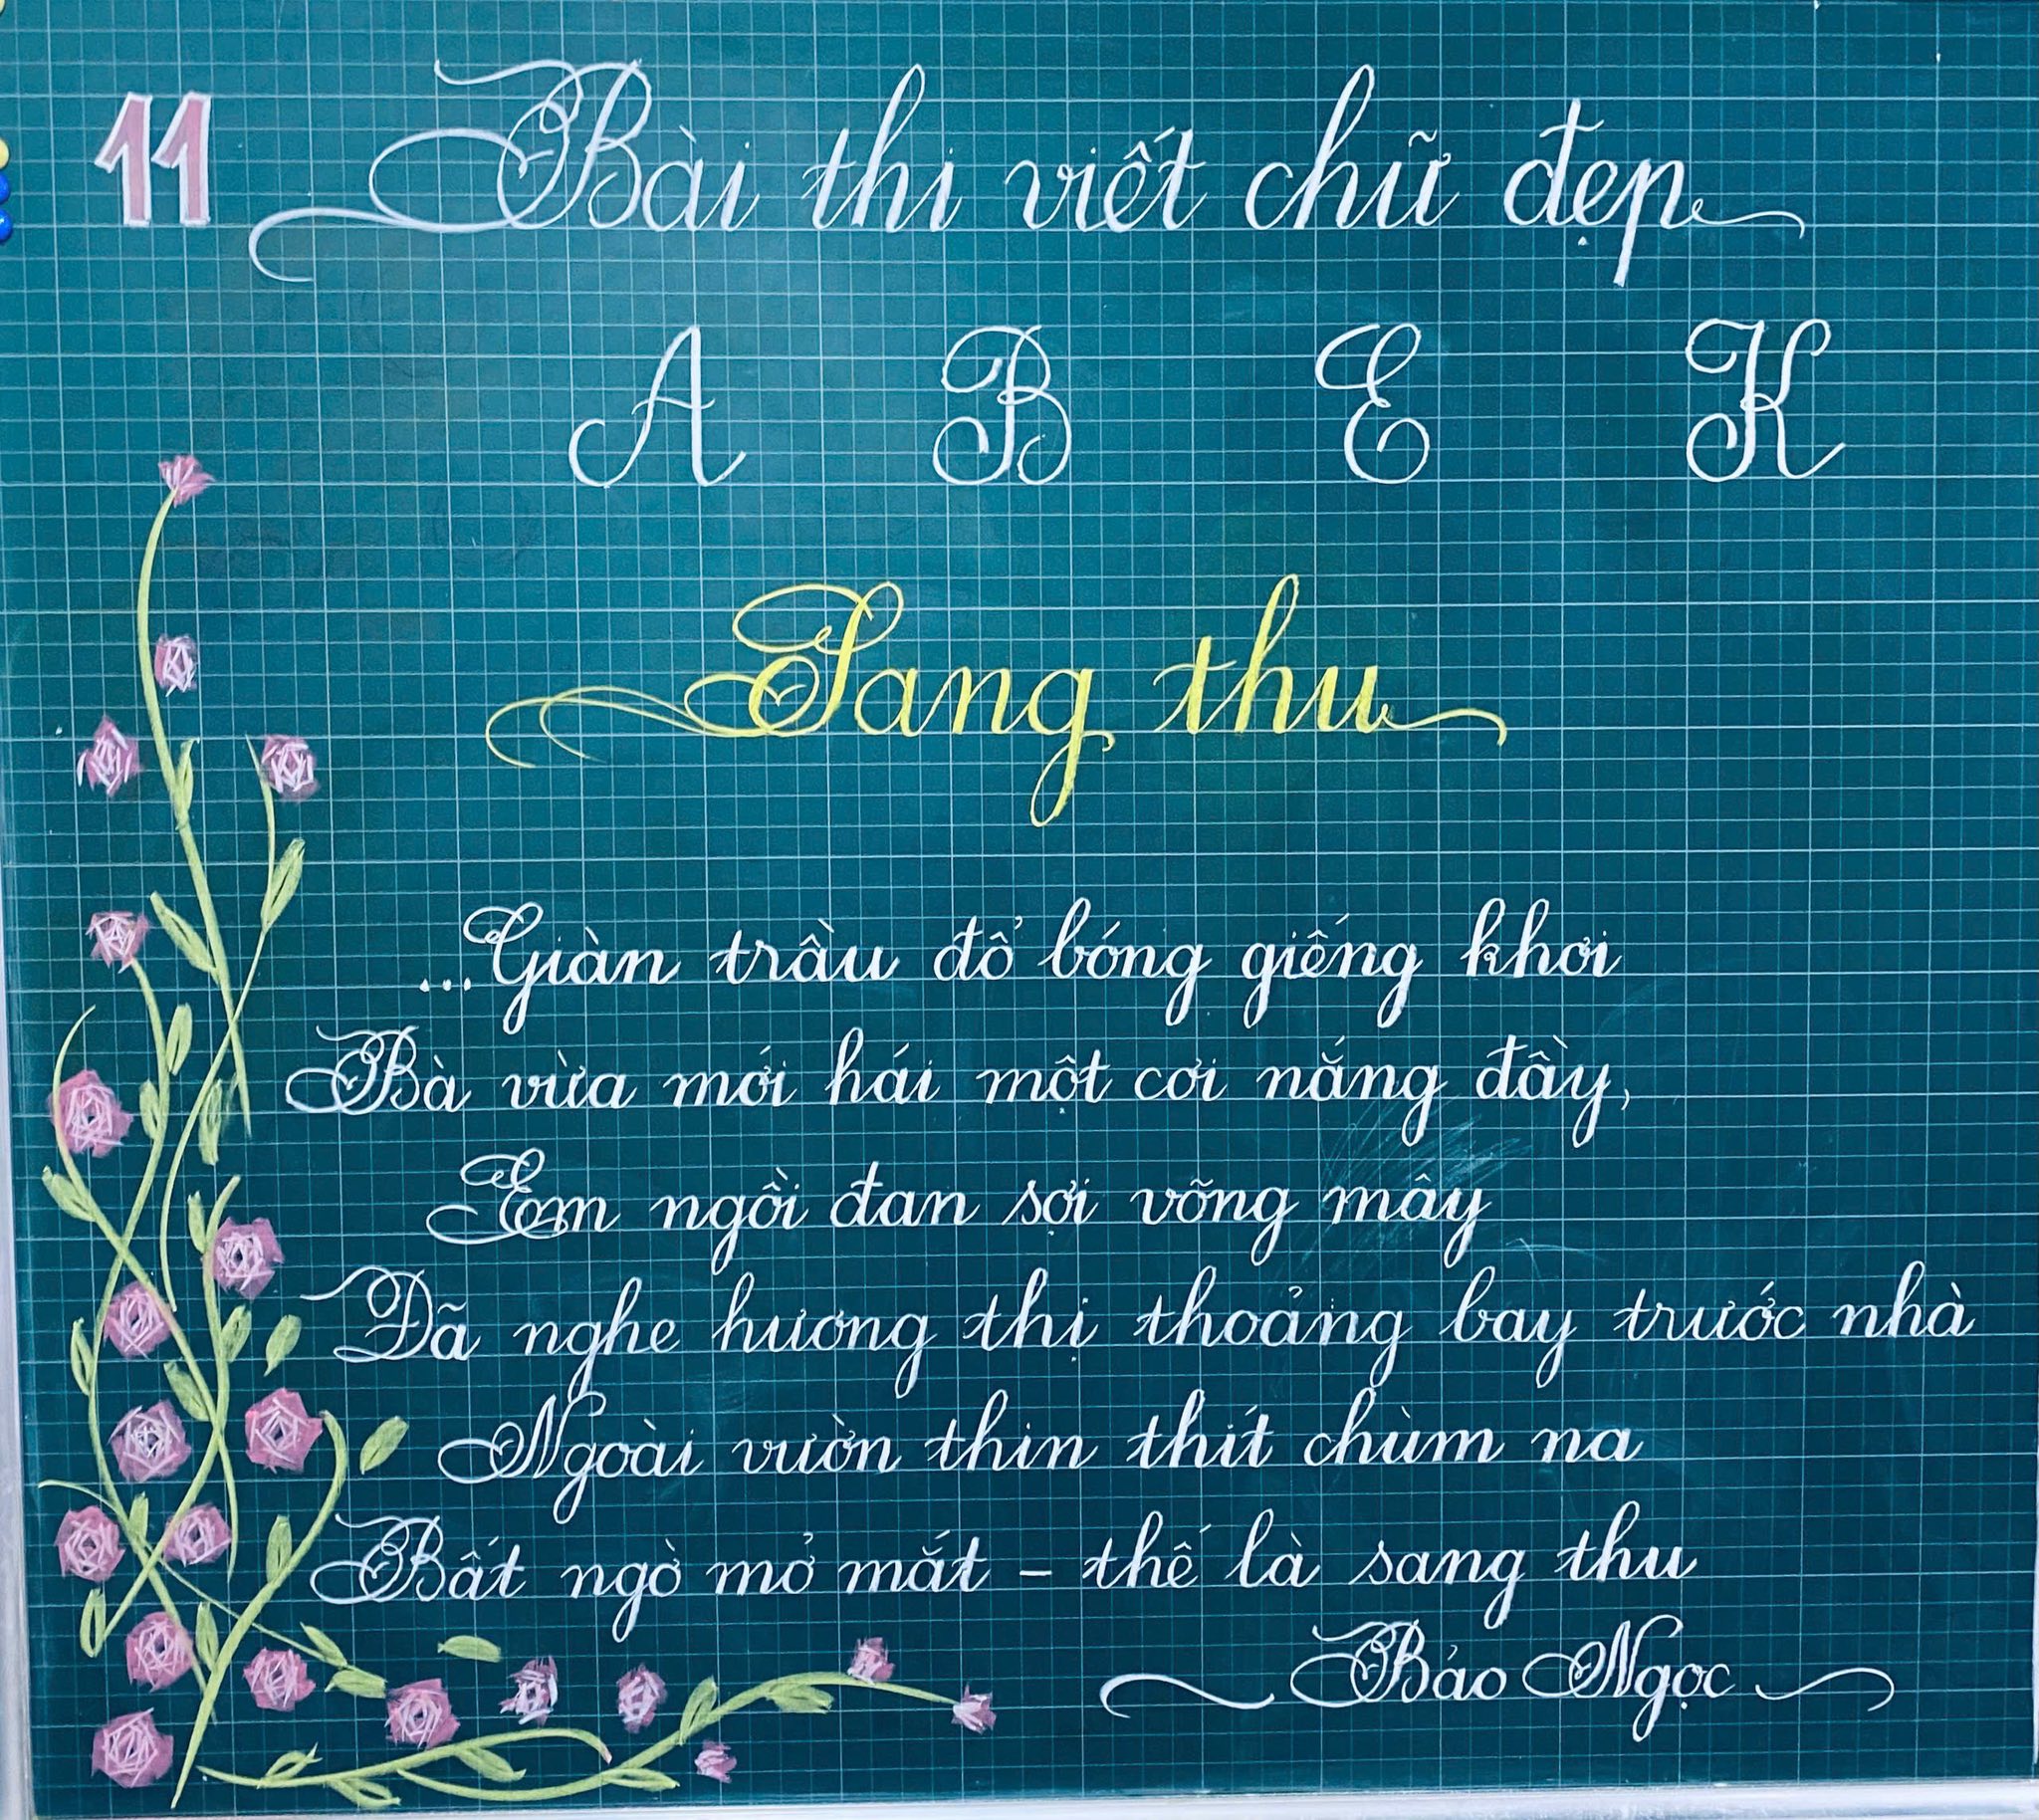 11 Bài thi viết chữ đẹp
A B E K
Sang thu
...Giàn trầu đổ bóng giếng khơi
Bà vừa mới hái một cơi nắng đầy,
Em ngồi đan sợi võng mây
Đã nghe hương thị thoảng bay trước nhà
Ngoài vườn thin thít chùm na
Bất ngờ mở mắt - thế là sang thu
Bảo Ngọc